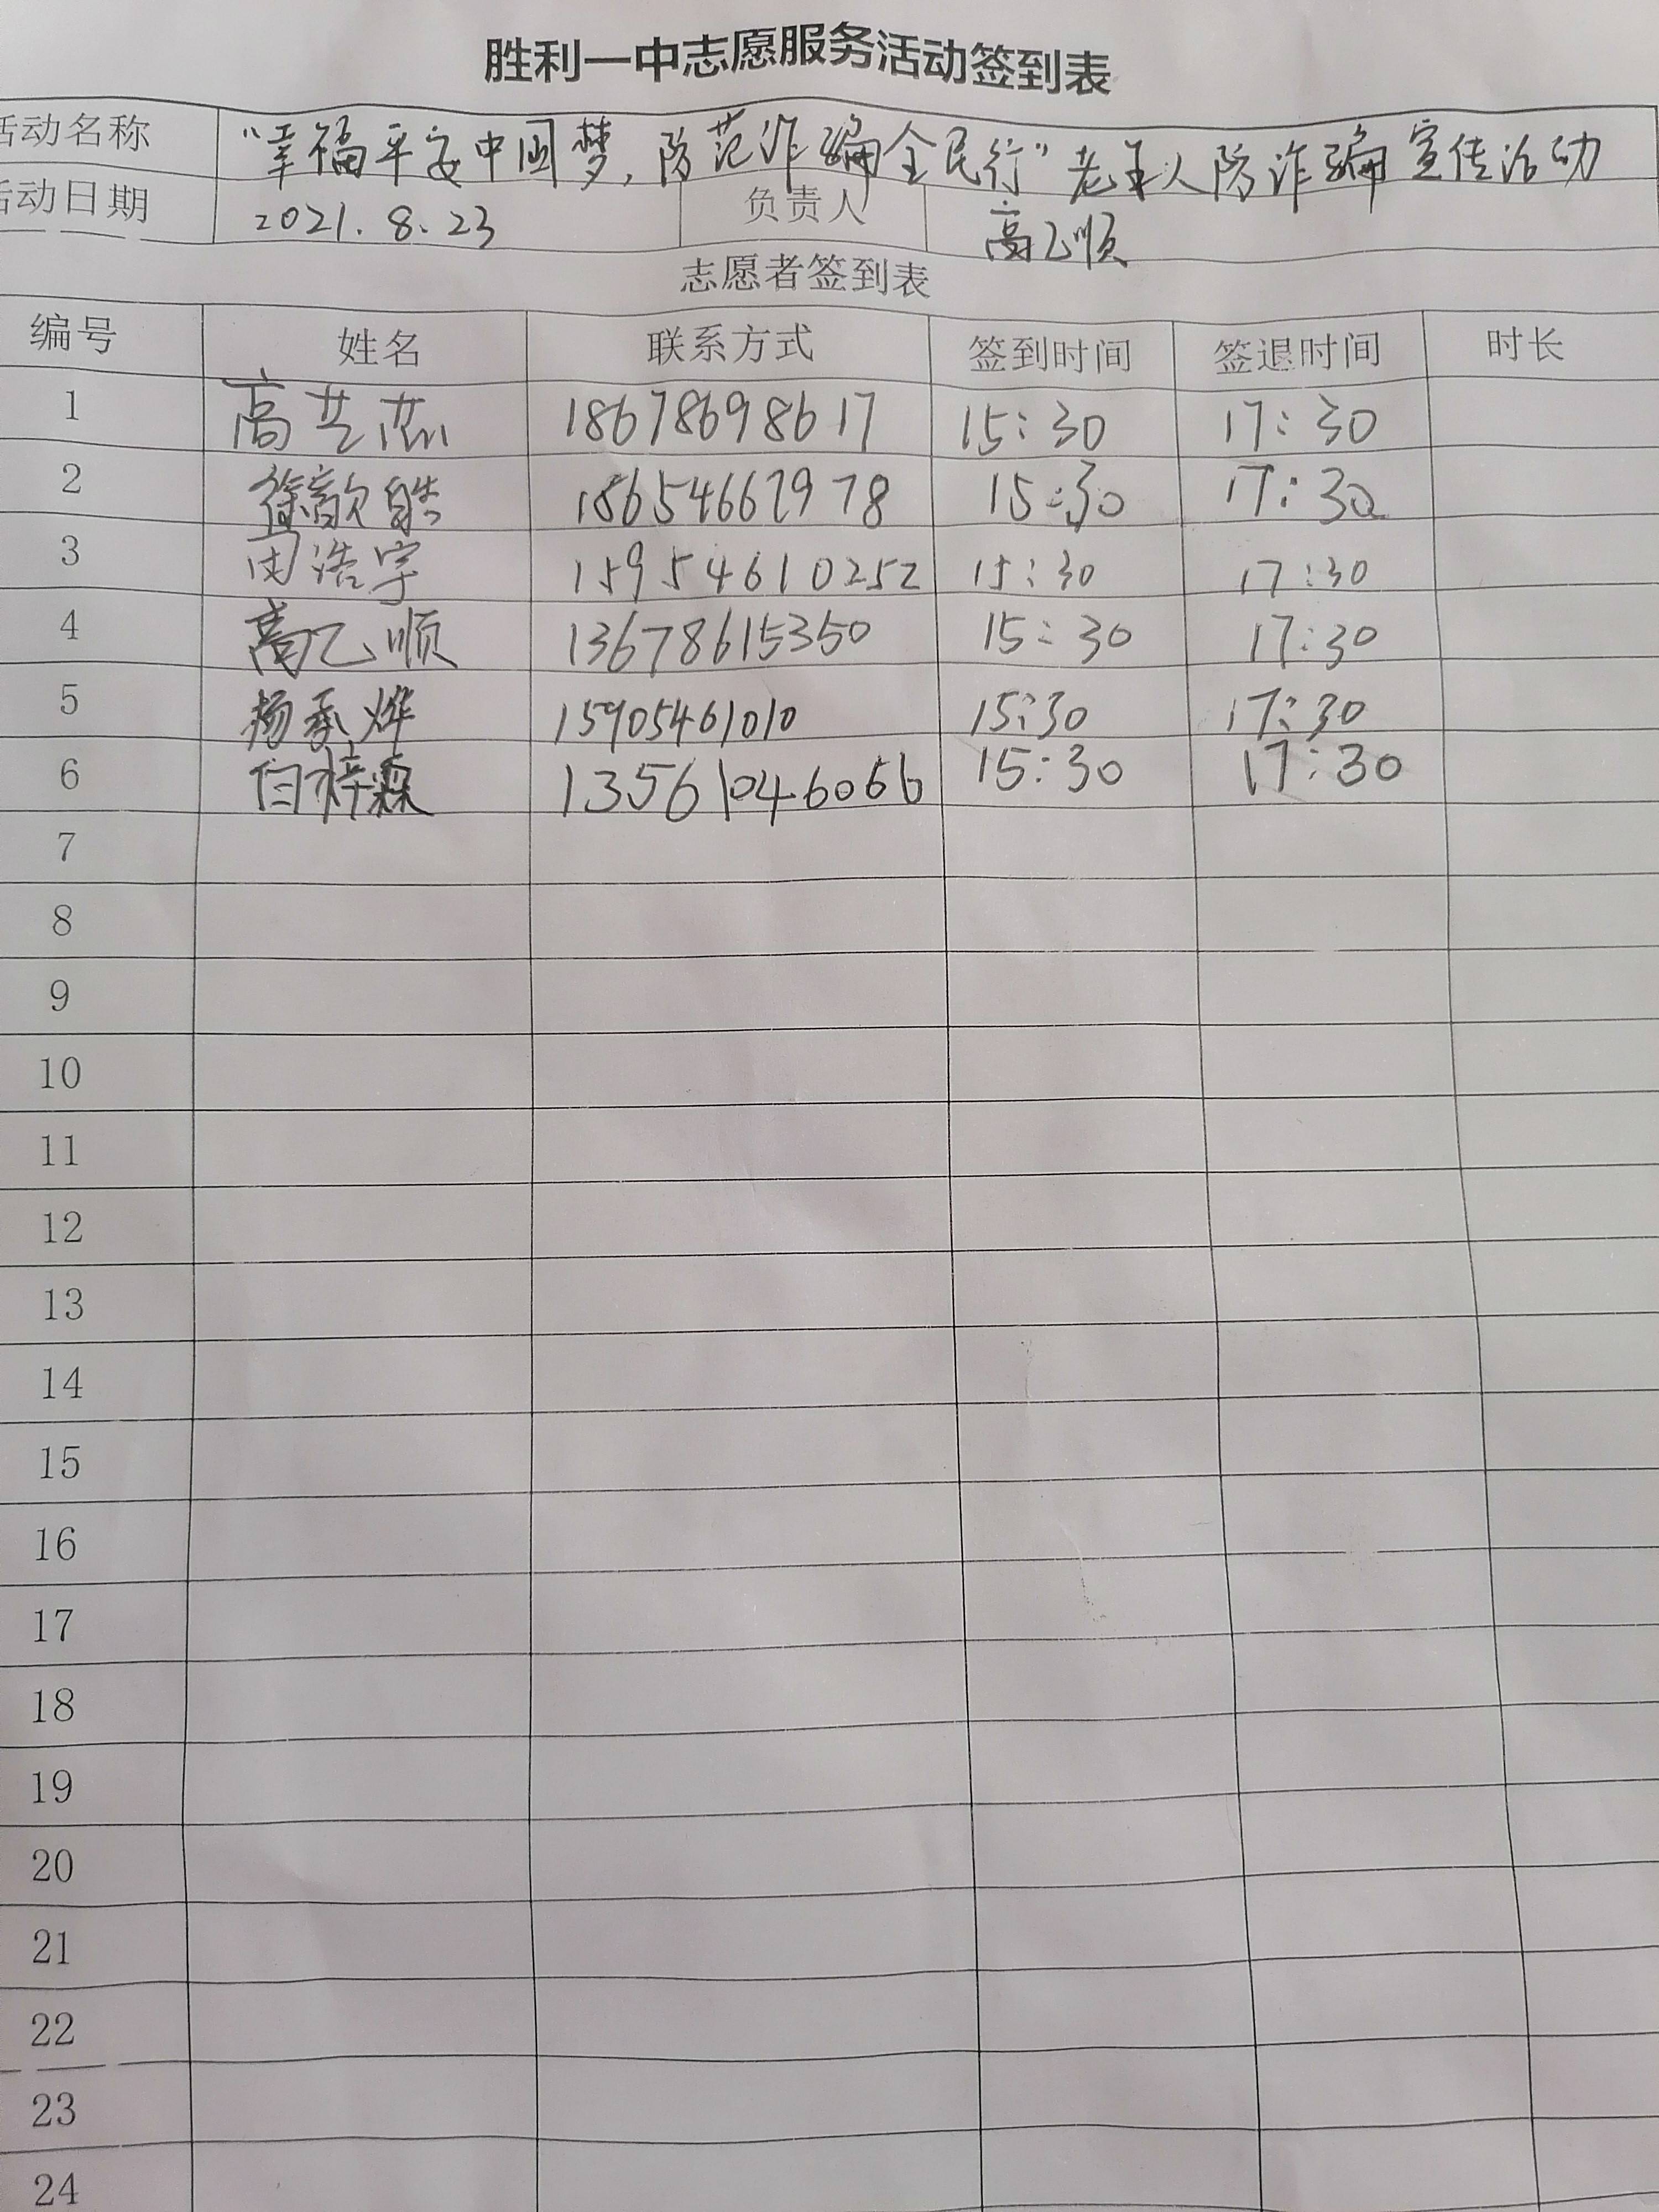 胜利一中志愿服务活动签到表
活动名称 "幸福平安中国梦,防范诈骗全民行"老年人防诈骗宣传活动
活动日期 2021.8.23 负责人 高乙顺
志愿者签到表
编号 姓名 联系方式 签到时间 签退时间 时长
1 高艺 18678698617 15:30 17:30
2 徐歆皓 18654662978 15:30 17:30
3 浩宇 15954610252 15:30 17:30
4 高乙顺 13678615350 15:30 17:30
5 杨承烨 15905461010 15:30 17:30
6 梓森 13561046066 15:30 17:30
7
8
9
10
11
12
13
14
15
16
17
18
19
20
21
22
23
24